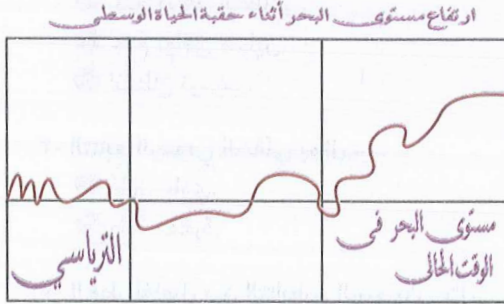 ارتفاع مستوى البحر أثناء حقبة الحياة الوسطى
الترياسي
مستوى البحر فى
الوقت الحالى